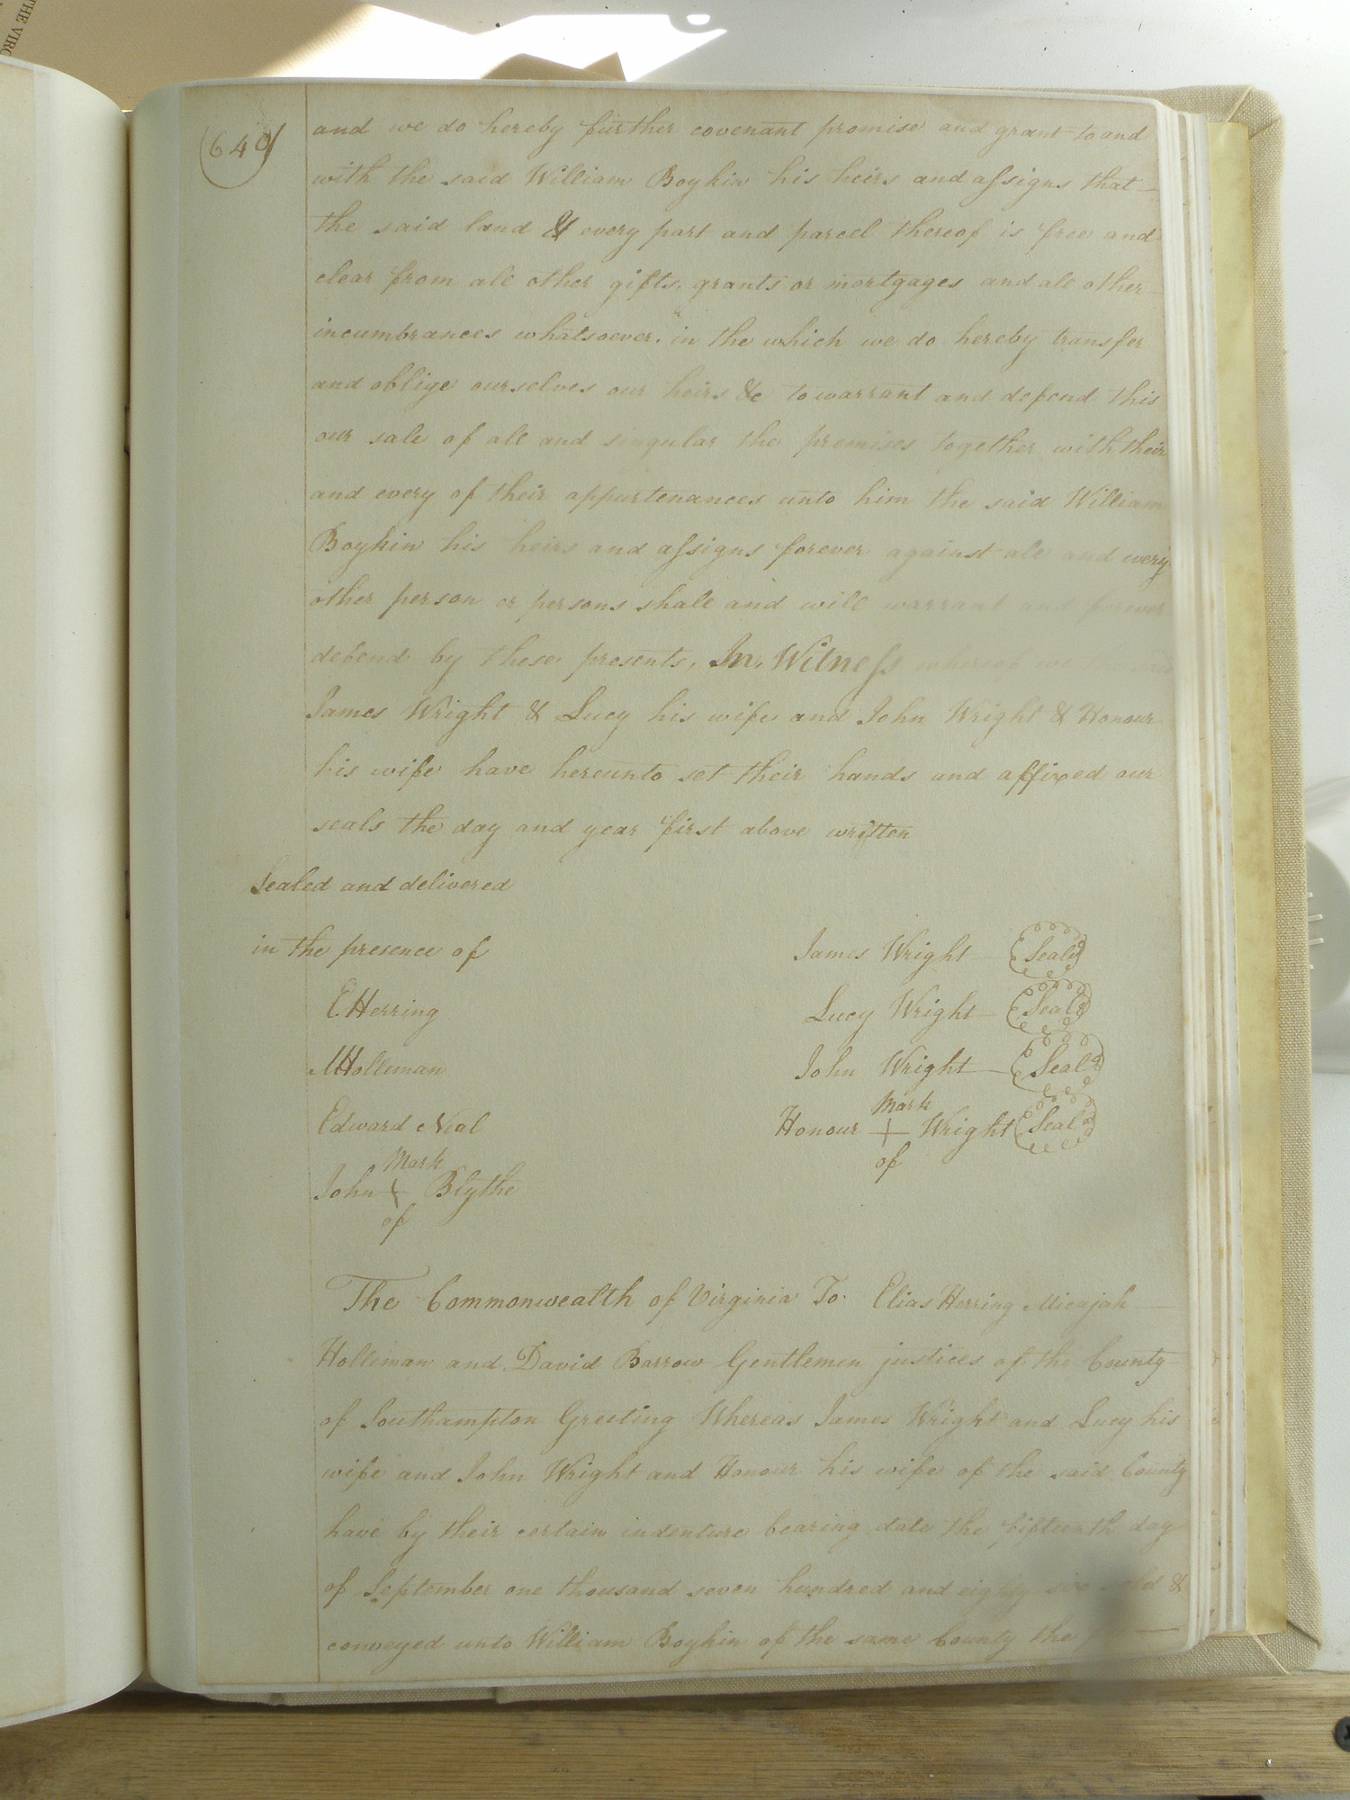 THE VIRG
(640)
and we do hereby further covenant promise and grant to and
with the said William Boykin his heirs and assigns that
the said land & every part and parcel thereof is free and
clear from all other gifts, grants or mortgages and all other
incumbrances whatsoever, in the which we do hereby transfer
and oblige ourselves our heirs &c to warrant and defend this
our sale of all and singular the premises together with their
and every of their appurtenances unto him the said William
Boykin his heirs and assigns forever against all and every
other person or persons shall and will warrant and forever
defend by these presents, In Witness whereof we
James Wright & Lucy his wife and John Wright & Honour
his wife have hereunto set their hands and affixed our
seals the day and year first above written
Sealed and delivered
in the presence of
James Wright Seal
EHerring
Lucy Wright Seal
MHolleman
John Wright Seal
Mark
Edward Neal
Honour + Wright Seal
of
Mark
John + Blythe
of
The Commonwealth of Virginia To Elias Herring Micajah
Holleman and David Barrow Gentlemen justices of the County
of Southampton Greeting Whereas James Wright and Lucy his
wife and John Wright and Honour his wife of the said County
have by their certain indenture bearing date the fifteenth day
of September one thousand seven hundred and eighty six sold &
conveyed unto William Boykin of the same County the